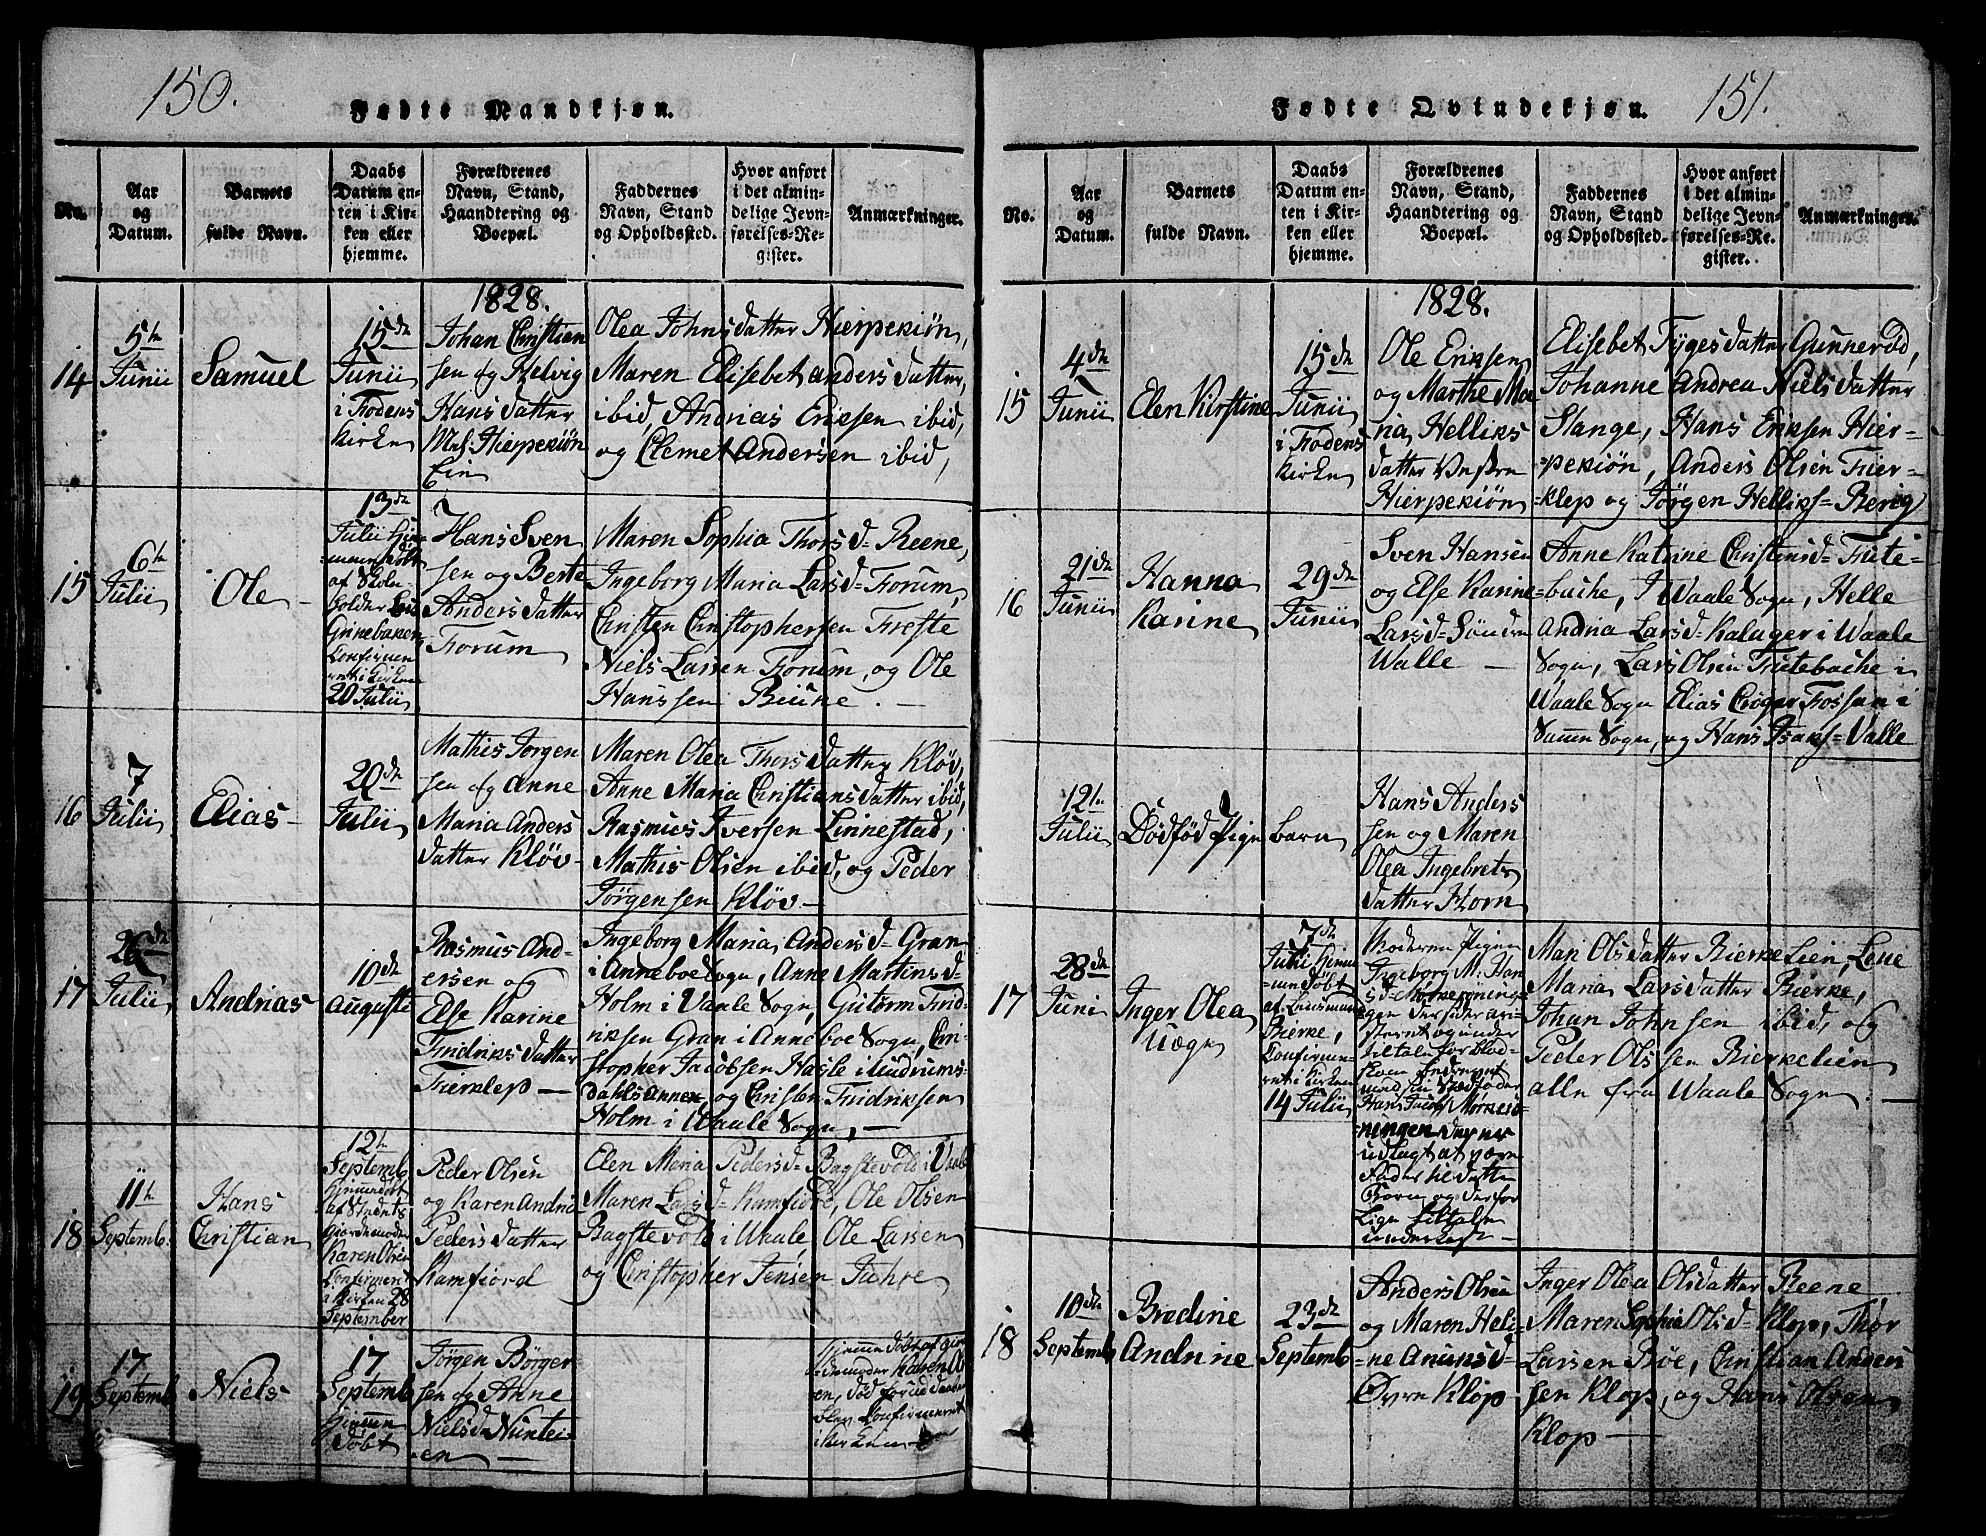 150.
Fødte Mandkjøn.
No.
Aar
og
Datum.
Barnets
fulde Navn.
Daabs
Datum en-
ten i Kir-
ken eller
hjemme.
Forældrenes
Navn, Stand,
Haandtering og
Boepæl.
Faddernes
Navn, Stand
og Opholdssted.
Hvor anført
i det almin-
delige Jevn-
førelses-Re-
gister.
Anmærkninger.
1828.
14
5te
Junii
Samuel
15de
Junii
i Fodens
Kirke
Johan Christian
sen og Helvig
Hans datter
Hierpekiøn
Eie
Olea Johnsdatter Hierpekiøn,
Maren Elisebet Andersdatter,
ibid, Andrias Eriksen ibid,
og Clemet Andersen ibid,
15
6te
Julii
Ole
13de
Julii Hje-
mmendøbt
af Skole-
holder
Confirme-
ret i Kirken
20 Julii
Hans Sven
sen og Berte
Anders datter
Forum
Maren Sophia Thorsd= Reene,
Ingeborg Maria Larsd= Forum,
Christen Christophersen Freste
Niels Larsen Forum, og Ole
Hanssen Biune. —
16
7
Julii
Elias
20de
Julii
Mathis Jørgen
sen og Anne
Maria Anders
datter Kløv
Maren Olea Thorsdatter Kløv,
Anne Maria Christiansdatter ibid,
Rasmus Iversen Linnestad,
Mathis Olsen ibid, og Peder
Jørgensen Kløv —
17
26de
Julii
Andrias
10de
Augusti
Rasmus And-
ersen og
Else Karine
Fridriks datter
Fierklep —
Ingeborg Maria Andersd= Gran
i Anneboe Sogn, Anne Martinsd=
Holm i Vaale Sogn, Gutorm Frid-
riksen Gran i Anneboe Sogn, Chri-
stopher Jacobsen Hasle i Undrums-
dahls Annex, og Christen Fridriksen
Holm i Vaale Sogn, —
18
11te
Septemb.
Hans
Christian
12te
Septemb
Hjemmendøbt
giordemoder
Karen Olsen
Confirmeret
i Kirken 28
September
Peder Olsen
og Karen Andrea
Peders datter
Ramfiord
Elen Maria Pedersd= Bagstevold i Vaale
Maren Larsd= Ramfiord, Ole Olsen
Bagstevold i Vaale, Ole Larsen
og Christopher Jensen Fuhre
19
17
Septemb
Niels
17
Septemb
Hjemme
Døbt
Jørgen Børger-
sen og Anne
Nielsd=
en —
Hjemmedøbt af gior-
demoder Karen
en, død forud Daaben
blev Confirmeret
i Kirken
151.
Fødte Qvindekjøn.
No.
Aar
og
Datum.
Barnets
fulde Navn.
Daabs
Datum en-
ten i Kir-
ken eller
hjemme.
Forældrenes
Navn, Stand,
Haandtering og
Boepæl.
Faddernes
Navn, Stand
og Opholdssted.
Hvor anført
i det almin-
delige Jevn-
førelses-Re-
gister.
Anmærkninger.
1828.
15
4de
Junii
Elen Kirstine
15de
Junii
i Fodens
Kirke
Ole Eriksen
og Marthe Ma-
ria Helliks
datter Vestre
Hierpekiøn
Elisebet Tygesdatter Gunnerød,
Johanne Andrea Nielsdatter
Slange, Hans Eriksen Hier-
pekiøn, Anders Olsen Fier-
klep og Jørgen Helliks= Berig
16
21de
Junii
Hanna
Karine
29de
Junii
Sven Hansen
og Else Karine
Larsd= Søndre
Valle —
Anne Katrine Christensd= Frete-
bache, i Waale Sogn, Helle
Andria Larsd= Kaluger i Waale
Sogn, Lars Olsen Fretebache i
Waale Sogn Elias Crøger Fossan i
Samme Sogn, og Hans Isans= Valle
12te
Julii
Dødfød Pige
barn
Hans Anders
sen og Maren
Olea Ingebrets
datter Horn
17
28de
Juni
Inger Olea
Uægte
7de
Julii Hjem-
me Døbt
af Lensmand
Bierke,
Confirme-
ret i Kirken
14 Julii
Moderen Pigen
Ingeborg M. Han
og under
tiltale for Blod-
skam
med sin Stedfader
Hans Jacobs= Mørkesø-
ningen der er
udlagt at være
Fader til dette
Barn og derfor
Lige tiltale
underlagt —
Mari Olsdatter Bierke Lien, Lene
Maria Larsdatter Bierke,
Johan Johnsen ibid, og
Peder Olssen Bierkelien
alle fra Waale Sogn. —
18
10de
Septemb
Bredine
Andrine
23de
Septemb
Anders Olsen
og Maren Heli-
ne Anunsd=
Øvre Klop
Inger Olea Olsdatter Reene
Maren Sophia Olsd= Klop, Thor
Larsen Bøe, Christian Anders
sen Klop, og Hans Olsen
Klop —